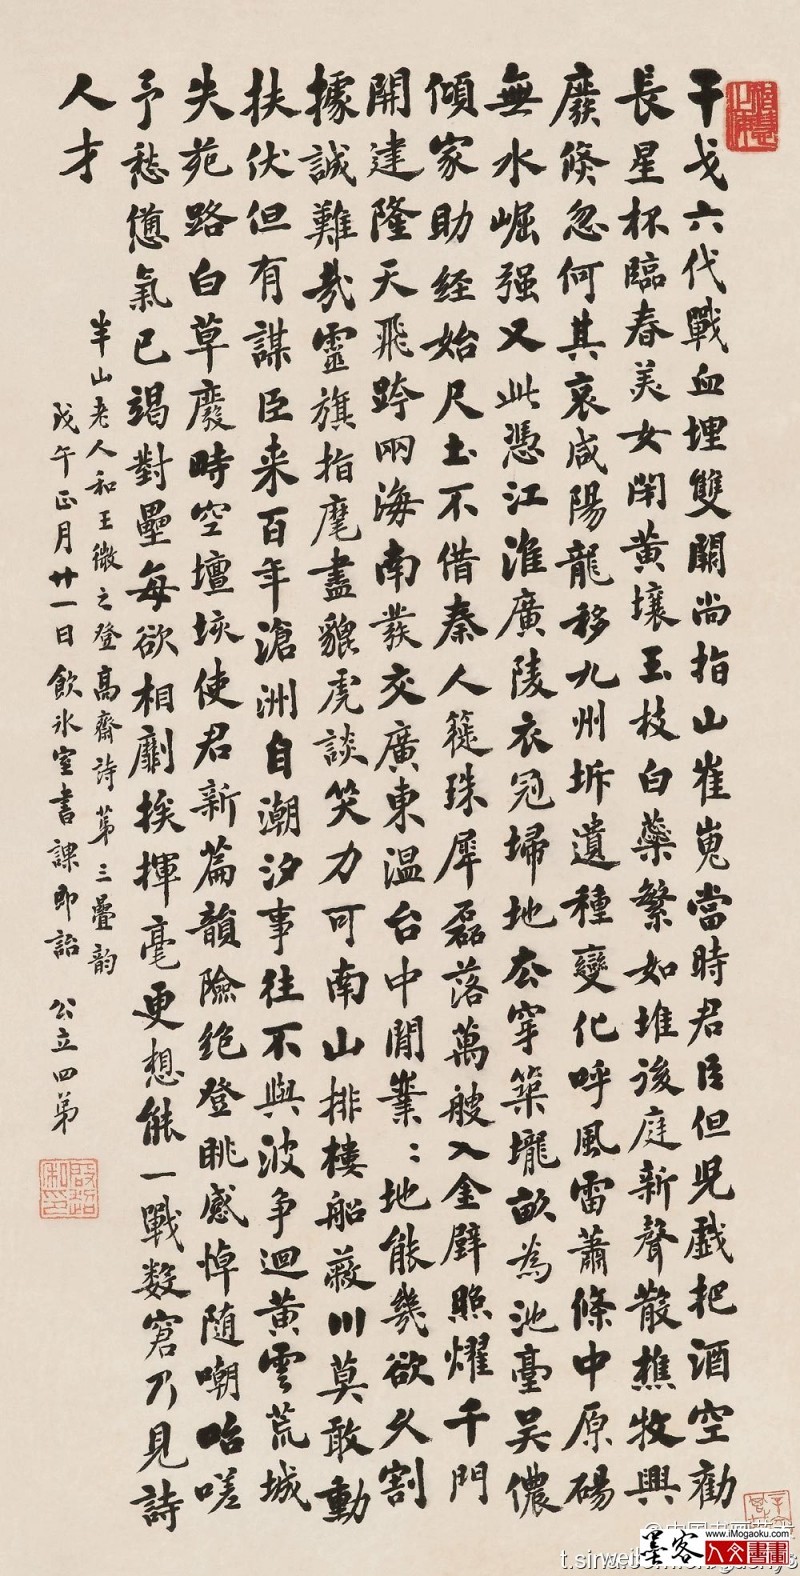 干戈六代戰血埋雙闕尚指山崔嵬當時君臣但兒戲把酒空勸
長星杯臨春美女閉黃壤玉枝白蘂繁如堆後庭新聲散樵牧興
廢倏忽何其哀咸陽龍移九州坼遺種變化呼風雷蕭條中原碭
無水崛强又此憑江淮廣陵衣冠掃地去穿築壠畝為池臺吳儂
傾家助經始尺土不借秦人簁珠犀磊落萬艘入金璧照耀千門
開建隆天飛跨兩海南發交廣東温台中間業〻地能幾欲久割
據誠難哉靈旗指麾盡貔虎談笑力可南山排樓船蔽川莫敢動
扶伏但有謀臣来百年滄洲自潮汐事往不與波争迴黃雲荒城
失苑路白草廢時空壇垓使君新篇韻險絶登眺感悼随嘲咍嗟
予愁憊氣已竭對壘每欲相劘挨揮毫更想能一戰數窘乃見詩
人才
半山老人和王微之登高齋詩第三疊韵
戊午正月廿一日飲冰室書課即詒 公立四弟
啟超私印
墨客 人文書畫
www.iMogaoku.com